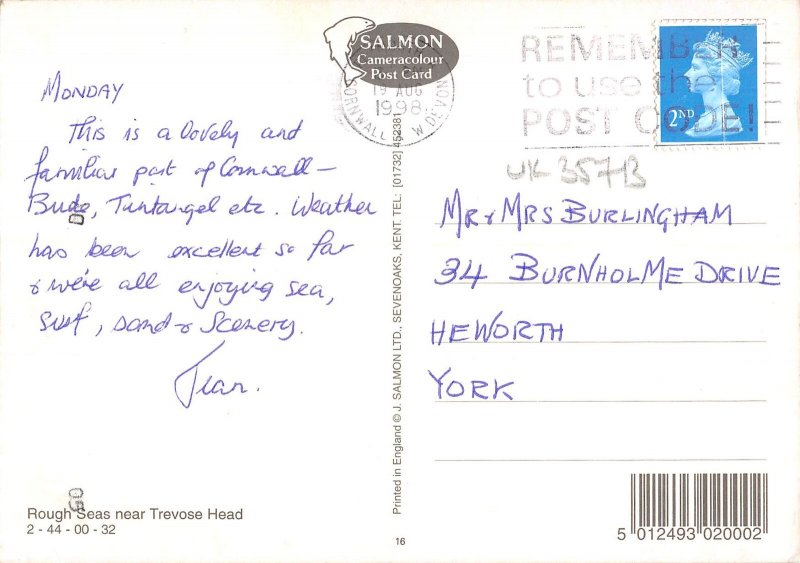 SALMON
Cameracolour
Post Card
19 AUG
1998
CORNWALL W DEVON
REMEMBER
to use the
POST CODE!
2ND
UK 357B
MONDAY
This is a lovely and
familiar part of Cornwall –
Bude, Tintangel etc. Weather
has been excellent so far
& we're all enjoying sea,
surf, sand & scenery.
Jean.
MR & MRS BURLINGHAM
34 BURNHOLME DRIVE
HEWORTH
YORK
Printed in England © J. SALMON LTD., SEVENOAKS, KENT. TEL: [01732] 452381
Rough Seas near Trevose Head
2 - 44 - 00 - 32
16
5 012493 020002